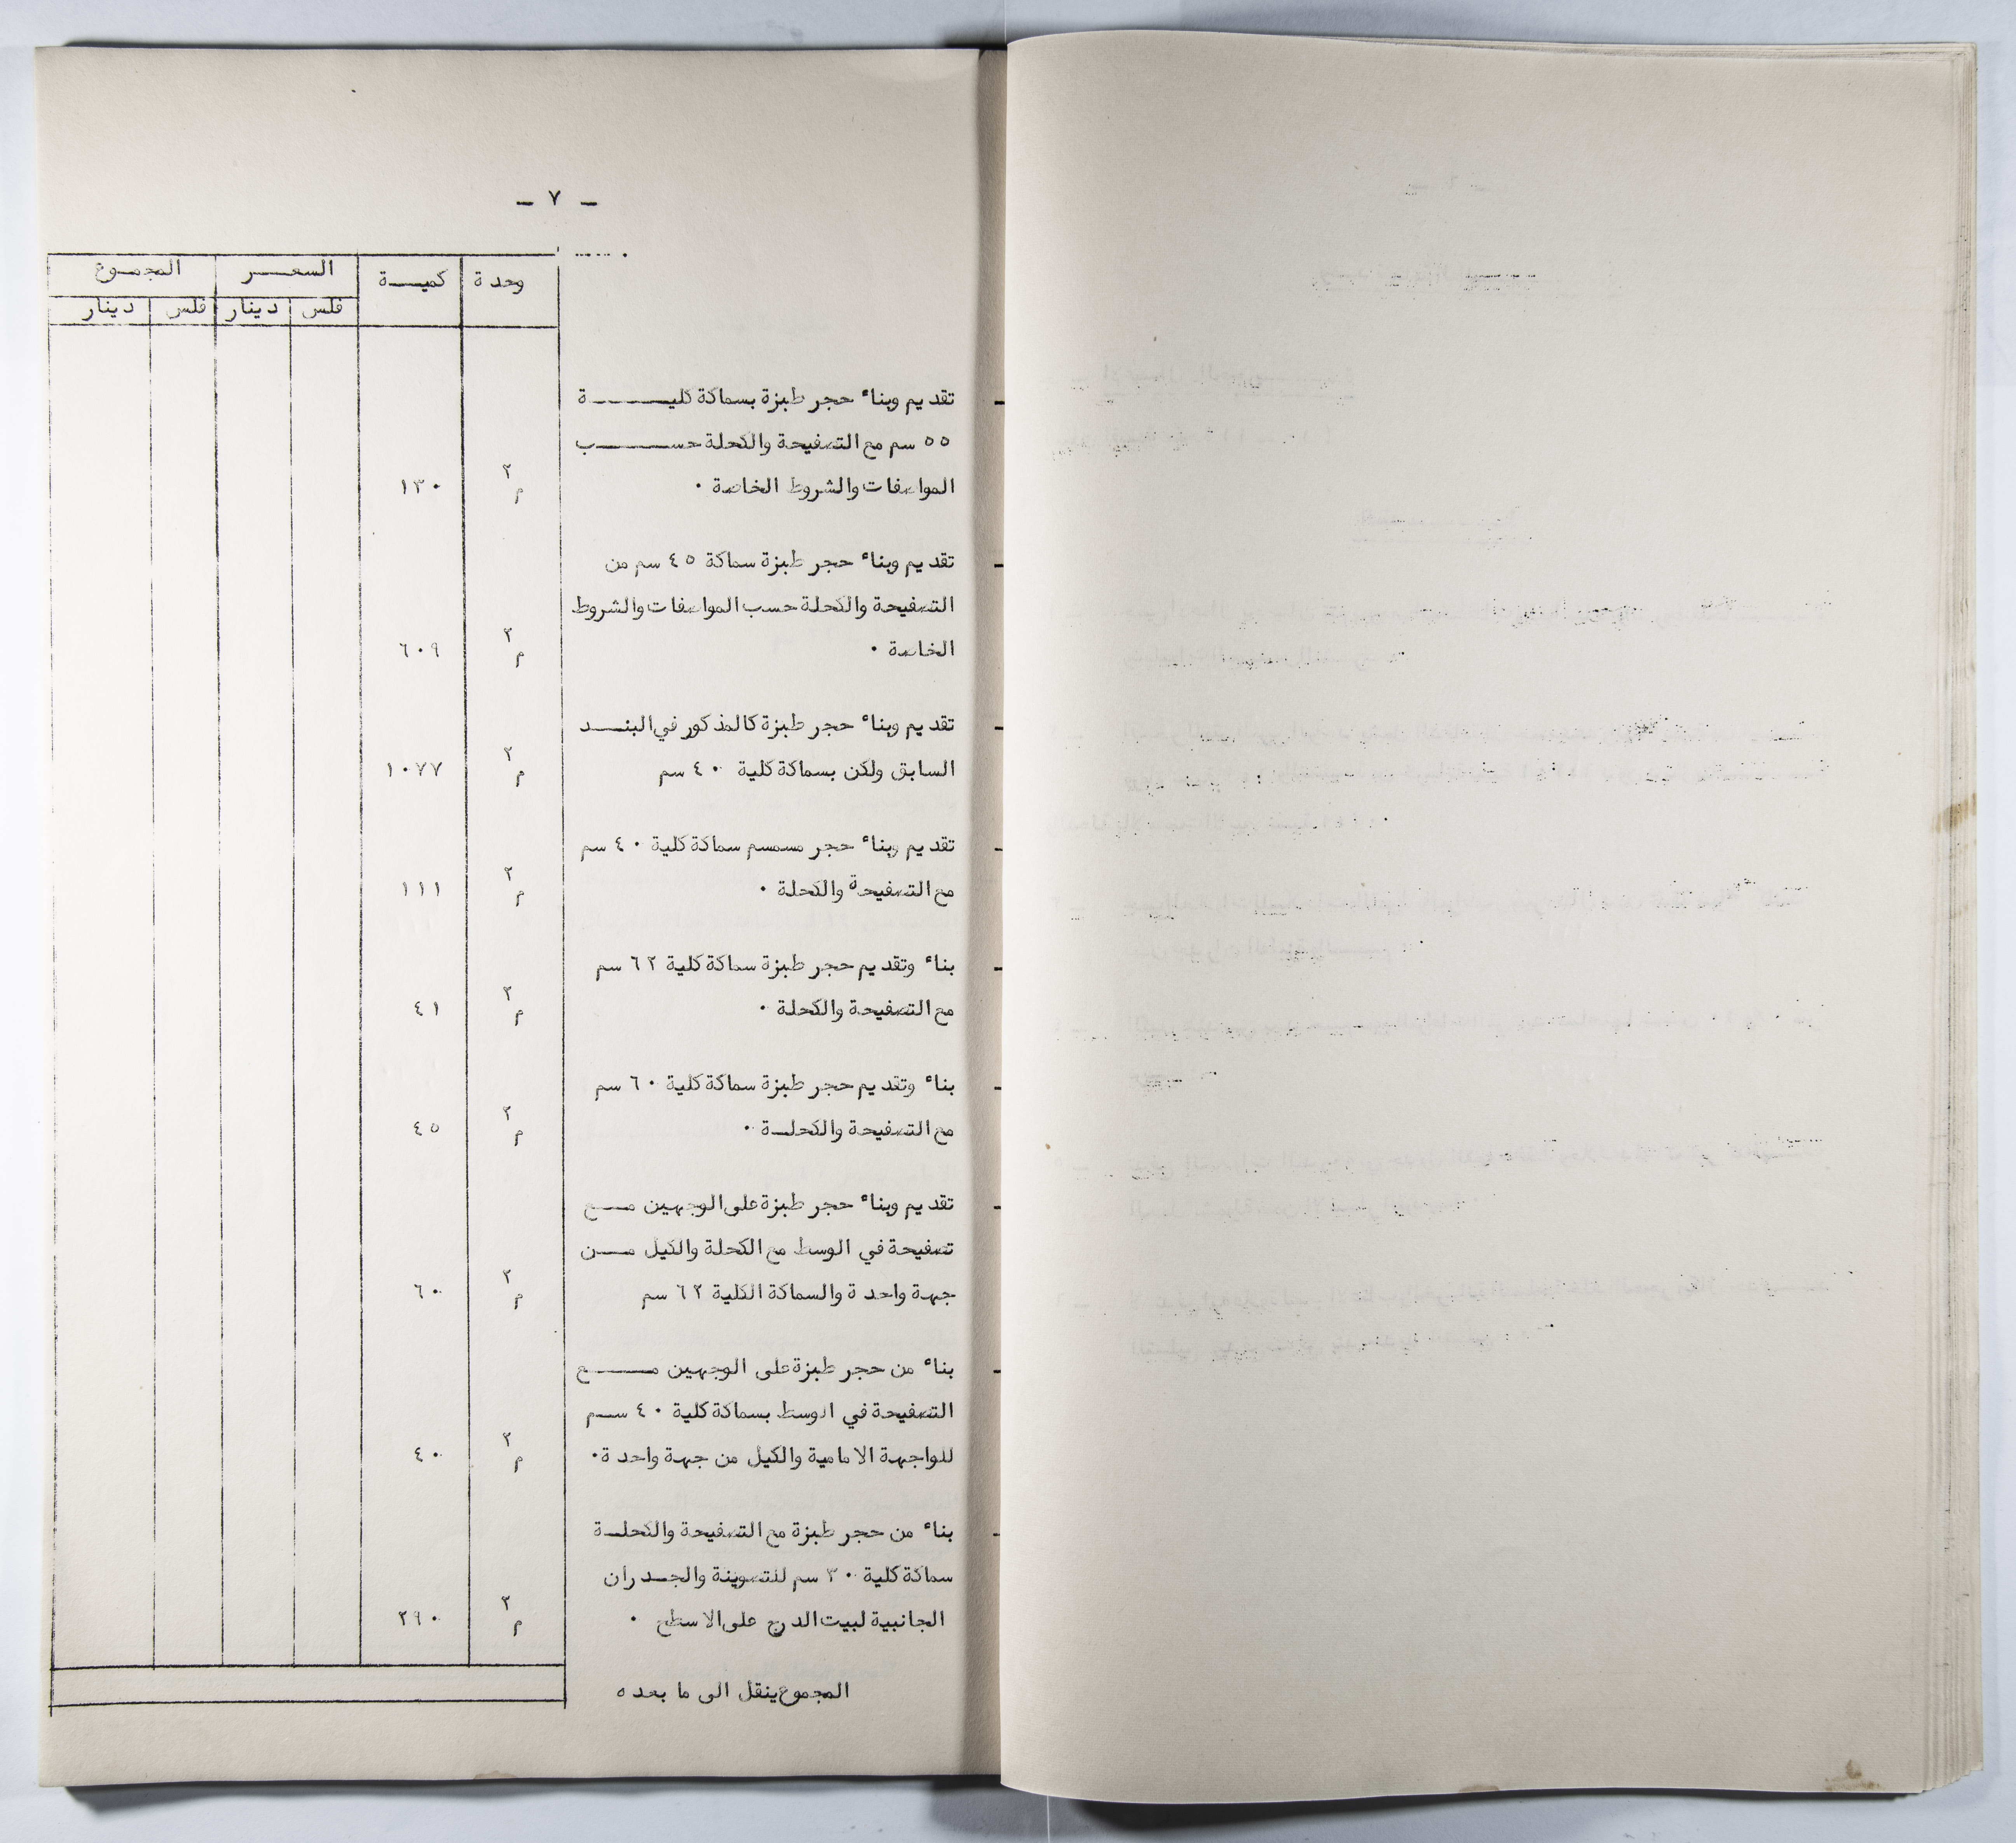 - ٧ -
وحدة كمية السعر المجموع
فلس دينار فلس دينار
تقديم وبناء حجر طبزة بسماكة كلية
٥٥ سم مع التصفيحة والكحلة حسب
المواصفات والشروط الخاصة . م٢ ١٣٠
تقديم وبناء حجر طبزة سماكة ٤٥ سم من
التصفيحة والكحلة حسب المواصفات والشروط
الخاصة . م٢ ٦٠٩
تقديم وبناء حجر طبزة كالمذكور في البند
السابق ولكن بسماكة كلية ٤٠ سم م٢ ١٠٧٧
تقديم وبناء حجر مسمسم سماكة كلية ٤٠ سم
مع التصفيحة والكحلة . م٢ ١١١
بناء وتقديم حجر طبزة سماكة كلية ٦٢ سم
مع التصفيحة والكحلة . م٢ ٤١
بناء وتقديم حجر طبزة سماكة كلية ٦٠ سم
مع التصفيحة والكحلة . م٢ ٤٥
تقديم وبناء حجر طبزة على الوجهين مع
تصفيحة في الوسط مع الكحلة والكيل من
جهة واحدة والسماكة الكلية ٦٢ سم م٢ ٦٠
بناء من حجر طبزة على الوجهين مع
التصفيحة في الوسط بسماكة كلية ٤٠ سم
للواجهة الامامية والكيل من جهة واحدة . م٢ ٤٠
بناء من حجر طبزة مع التصفيحة والكحلة
سماكة كلية ٣٠ سم للتصوينة والجدران
الجانبية لبيت الدرج على الاسطح . م٢ ٢٩٠
المجموع ينقل الى ما بعده